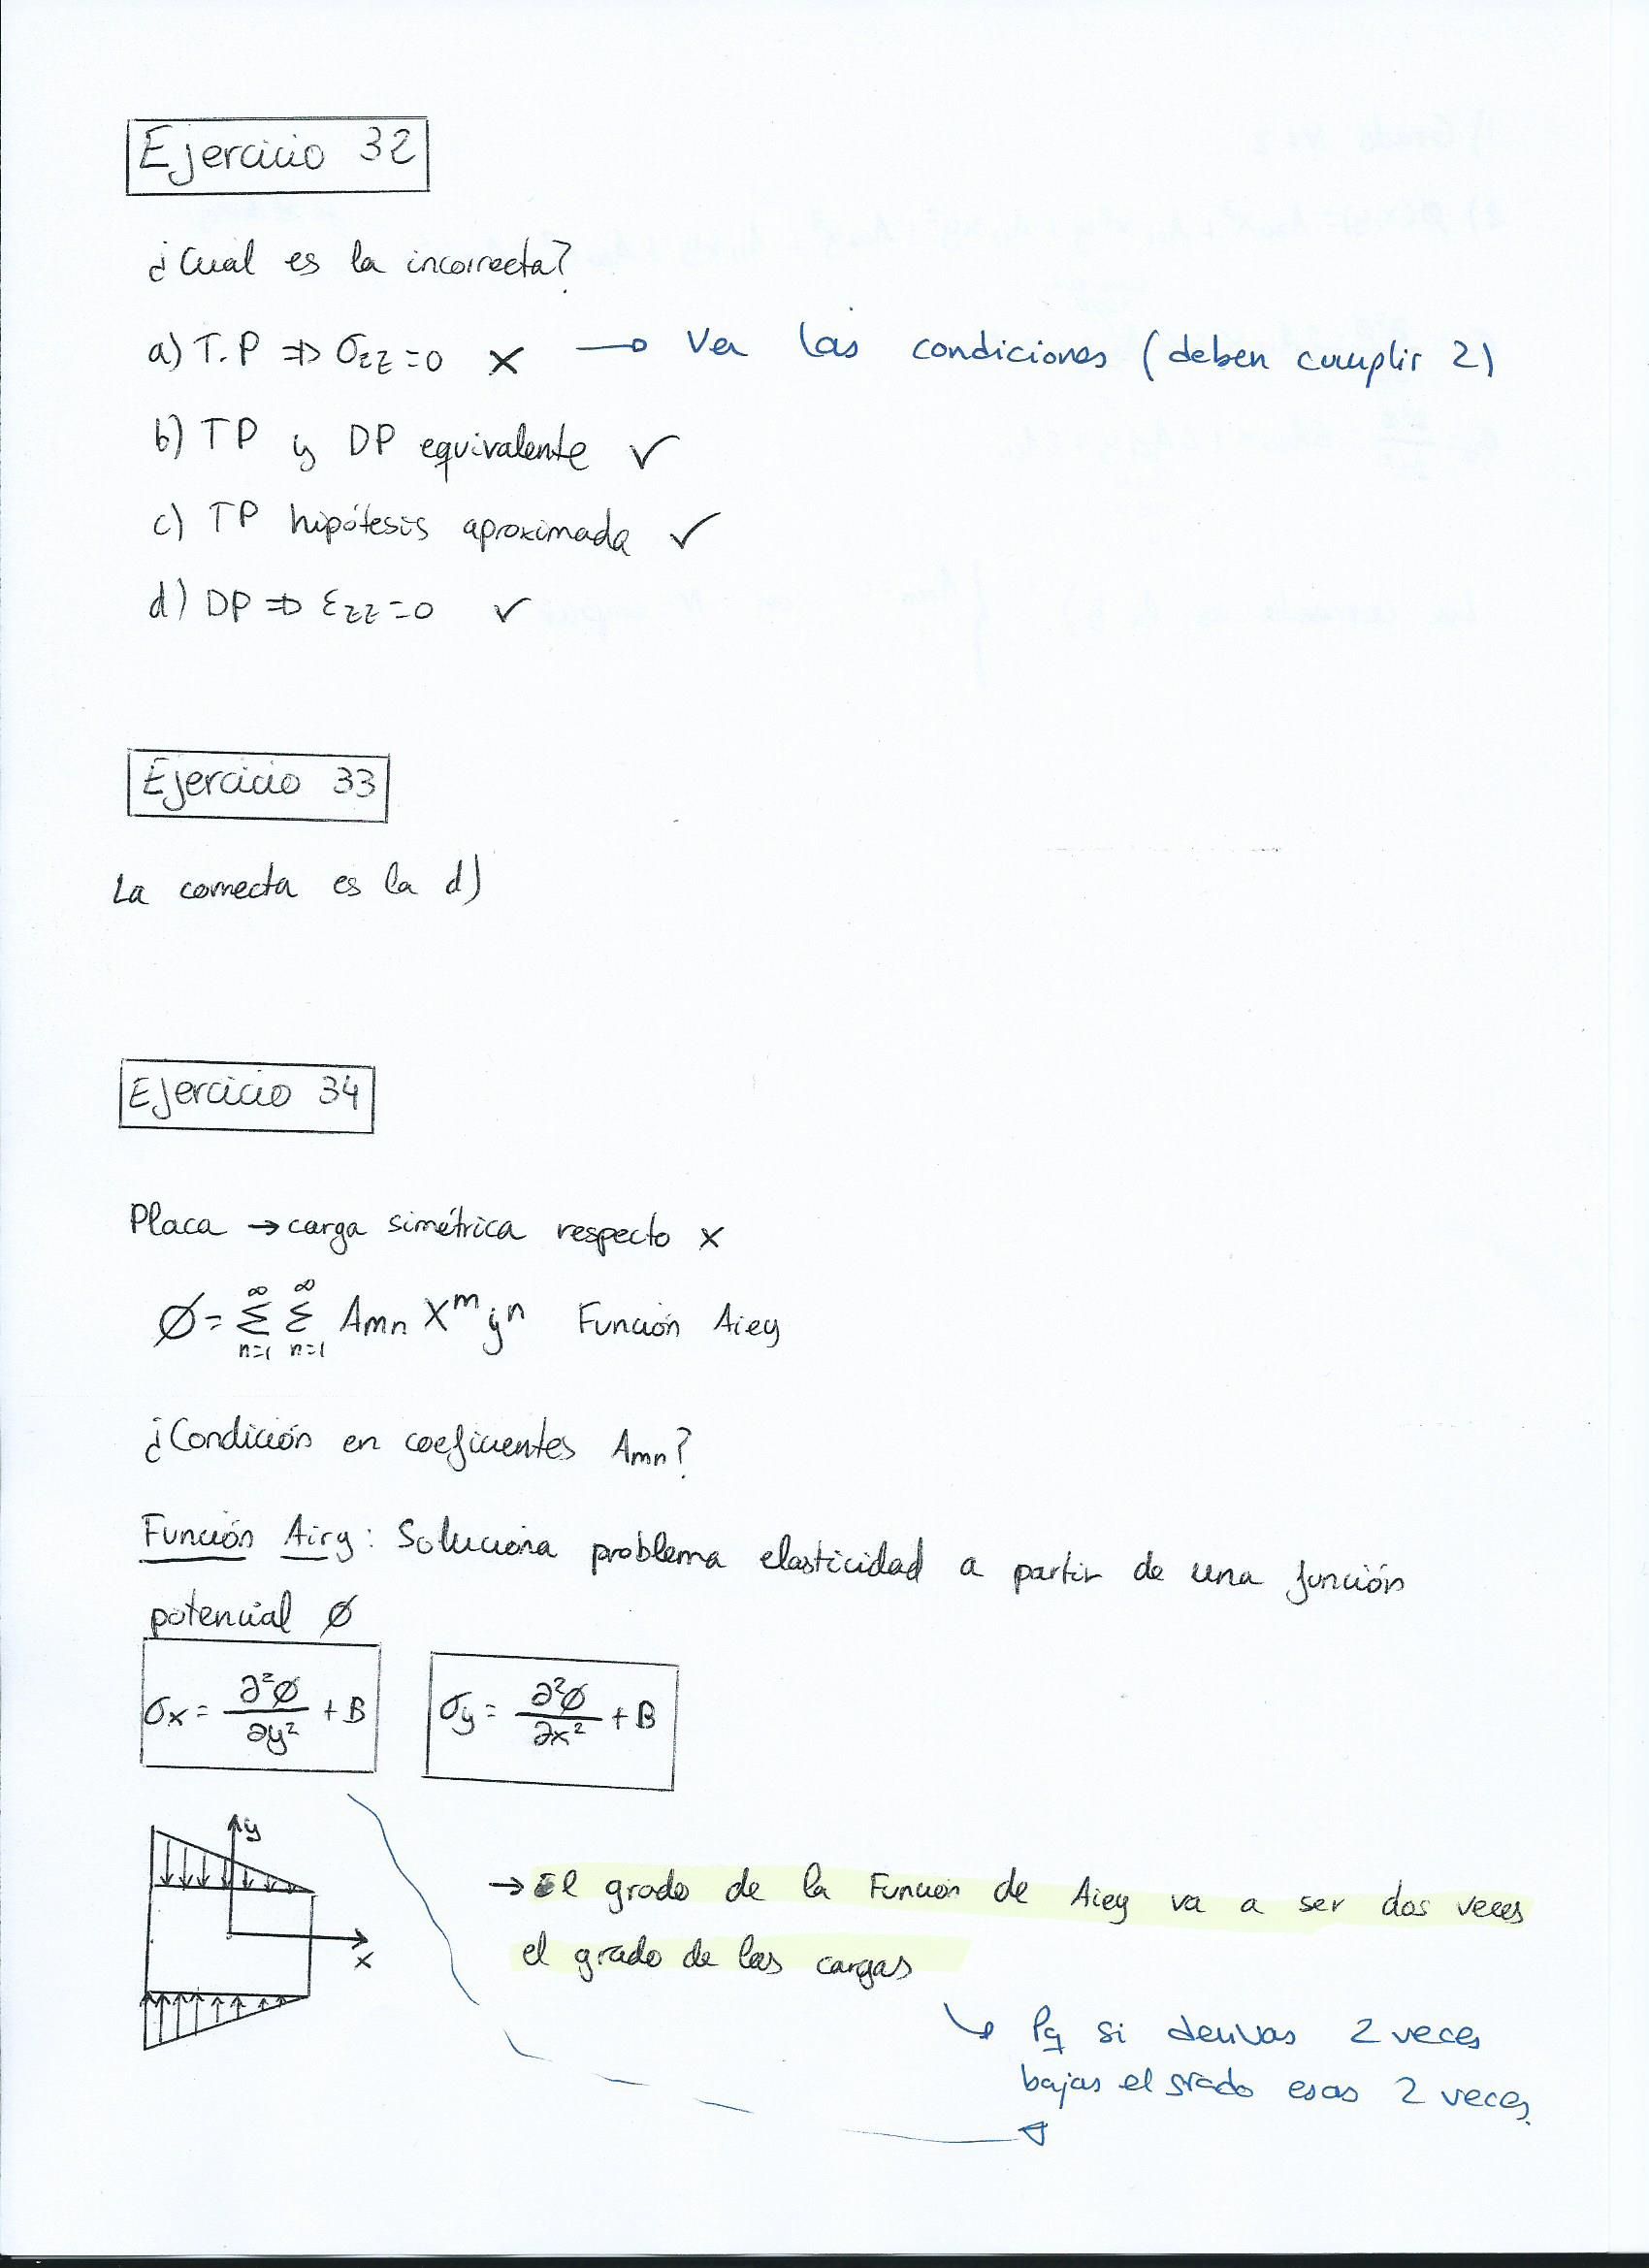 Ejercicio 32
¿Cual es la incorrecta?
a) T.P ⇒ σzz=0 ✗ → Ver las condiciones (deben cumplir 2)
b) TP y DP equivalente ✓
c) TP hipótesis aproximada ✓
d) DP ⇒ εzz=0 ✓
Ejercicio 33
La correcta es la d)
Ejercicio 34
Placa → carga simétrica respecto x
Ø = ∞Σn=1 ∞Σn=1 Amn X^m y^n Función Airy
¿Condición en coeficientes Amn?
Función Airy: Soluciona problema elasticidad a partir de una función
potencial Ø
σx = ∂²Ø/∂y² + B σy = ∂²Ø/∂x² + B
y
x
→ El grado de la Función de Airy va a ser dos veces
el grado de las cargas
↳ Pq si derivas 2 veces
bajas el grado esas 2 veces.